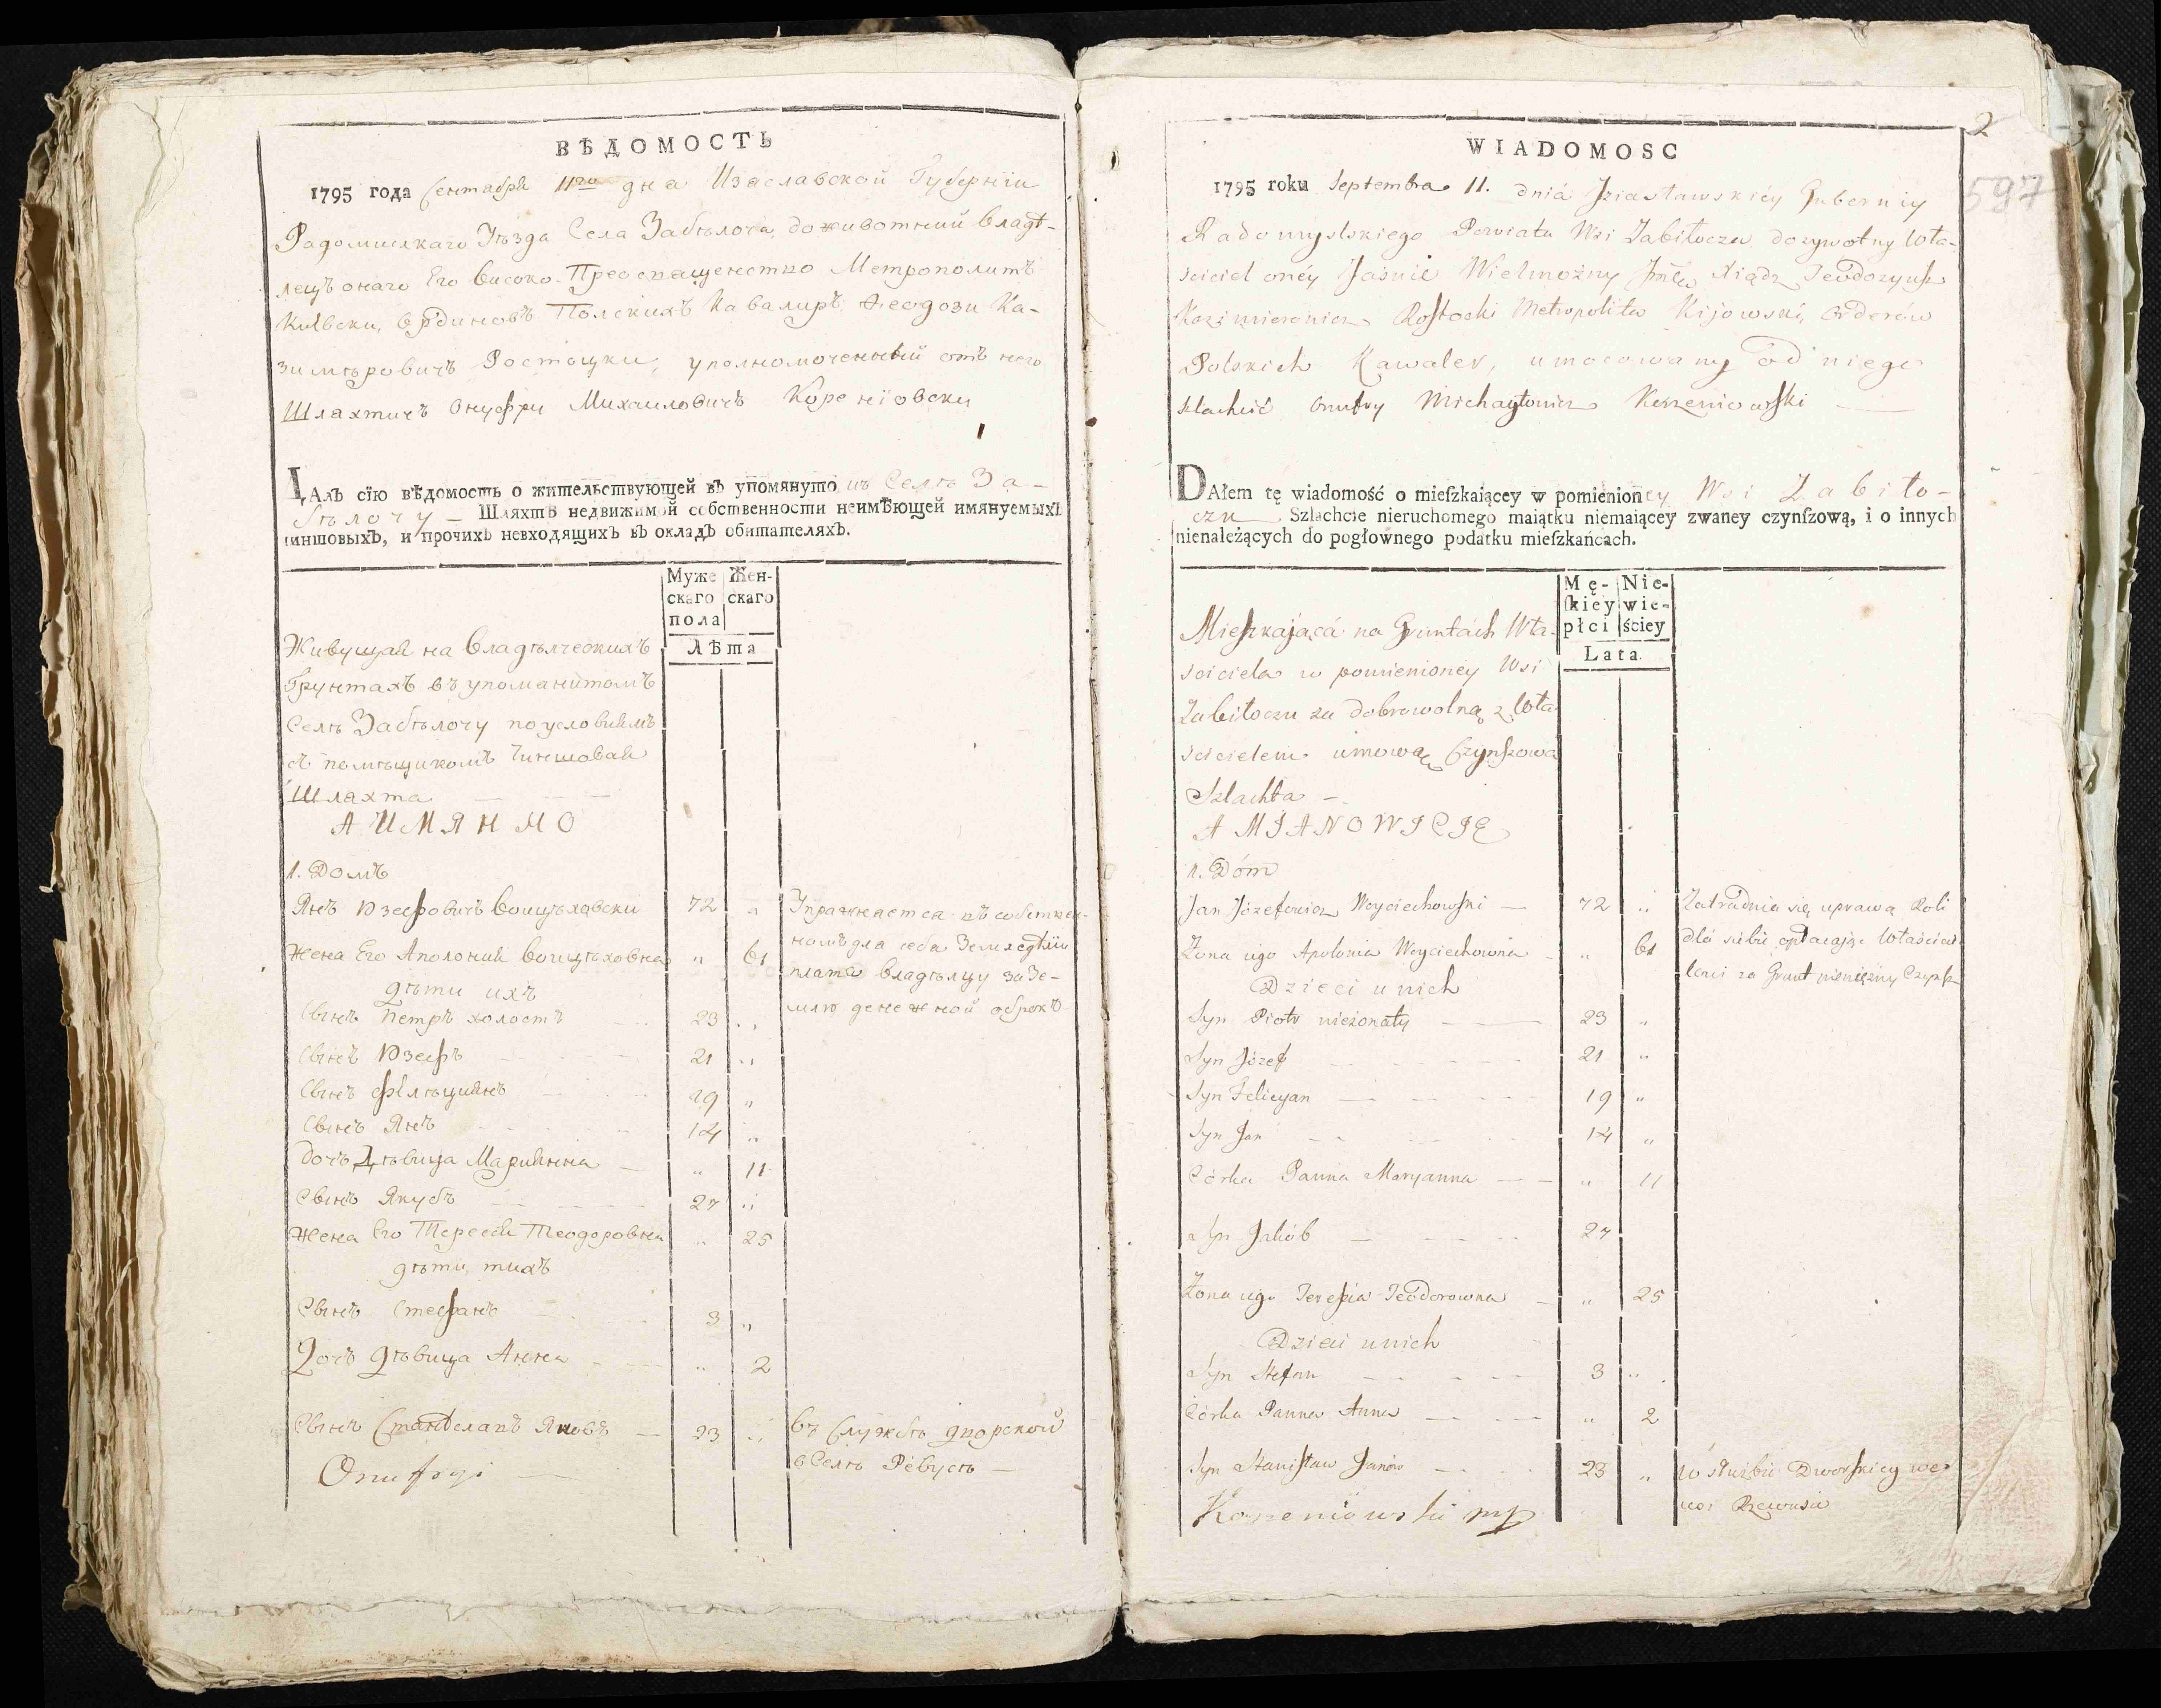 ВѢДОМОСТЬ
1795 года Сентабря 11го дна Изаславской Губернїи
Радомислкаго Уѣзда Села Забѣлоча, доживотний владѣ-
лецъ онаго Его Високо-Преосвященство Метрополитъ
Киевски, Ординовъ Полскихъ Кавалиръ Феодози Ка-
зимѣровичъ Ростоцки, уполномоченный отъ него
Шляхтичъ Онуфри Михаиловичъ Коренїовски
ДАлъ сїю вѣдомость о жительствующей въ упомянуто мъ Селѣ За-
бѣлочу — Шляхтѣ недвижимой собственности неимѣющей имянуемыхъ
чиншовыхъ, и прочихъ невходящихъ въ окладъ обитателяхъ.
Муже Жен-
скаго скаго
пола
Лѣта
Живущая на владѣлческихъ
Грунтахъ въ упоманутомъ
Селѣ Забѣлочу по условиямъ
съ помѣщикомъ Чиншовая
Шляхта
А ИМЯННО
1. Домъ
Янъ Юзефовичъ Воицѣховски 72 „ Упражнается въ собствен-
Жена Его Аполония Воицѣховна „ 61 номъ дла себа Земледѣлїи
дѣти ихъ плата владѣлцу за Зе-
Сынъ Петръ холостъ 23 „ млю денежной оброкъ
Сынъ Юзефъ 21 „
Сынъ Фѣлѣциянъ 19 „
Сынъ Янъ 14 „
дочъ Дѣвица Мариянна „ 11
Сынъ Якубъ 27 „
Жена Его Тересия Теодоровна „ 25
дѣти тихъ
Сынъ Стефанъ 3 „
Дочъ дѣвица Анна „ 2
Сынъ Станѣславъ Яновъ 23 „ въ Службѣ дворской
Onufryi в Селѣ Ревусѣ —
2
597
WIADOMOSC
1795 roku Septembra 11. dniá Jziasławskiéy Guberniy
Radomyslskiego Powiatu Wsi Zabiłocza dozywotny Wła-
sciciel onéy Jaśnie Wielmożny Jmć Xiądz Teodozyusz
Kazimierowicz Rostocki Metropolita Kijowski, Orderów
Polskich Kawaler, umocowany od niego
szlachcić Onufry Michayłowicz Korzeniowski —
DAłem tę wiadomość o mieſzkaiącey w pomienioney Wsi Zabiło-
czu — Szlachcie nieruchomego maiątku niemaiącey zwaney czynſzową, i o innych
nienależących do pogłownego podatku mieſzkańcach.
Mę- Nie-
ſkiey wie-
płci ściey
Lata.
Mieszkająca na Gruntach Wła-
sciciela w pomienioney Wsi
Zabiłoczu za dobrowolną z Wła-
scicielem umową Czynszowa
Szlachta —
A MIANOWICIE
1. Dóm
Jan Józefowicz Woyciechowski — 72 „ Zatrudnia się uprawą Roli
Żona iego Apolonia Woyciechowna „ 61 dla siebie opłacając Właścicie-
Dzieci u nich lowi za Grunt pieniężny Czynsz
Syn Piotr nieżonaty — 23 „
Syn Józef 21 „
Syn Felicyan 19 „
Syn Jan 14 „
Córka Panna Maryanna „ 11
Syn Jakób 27
Żona iego Teresia Teodorowna „ 25
Dzieci u nich
Syn Stefan 3 „
Córka Panna Anna „ 2
Syn Stanisław Janów 23 „ w służbie Dworskiey we
Korzeniowski mp wsi Rzewusie